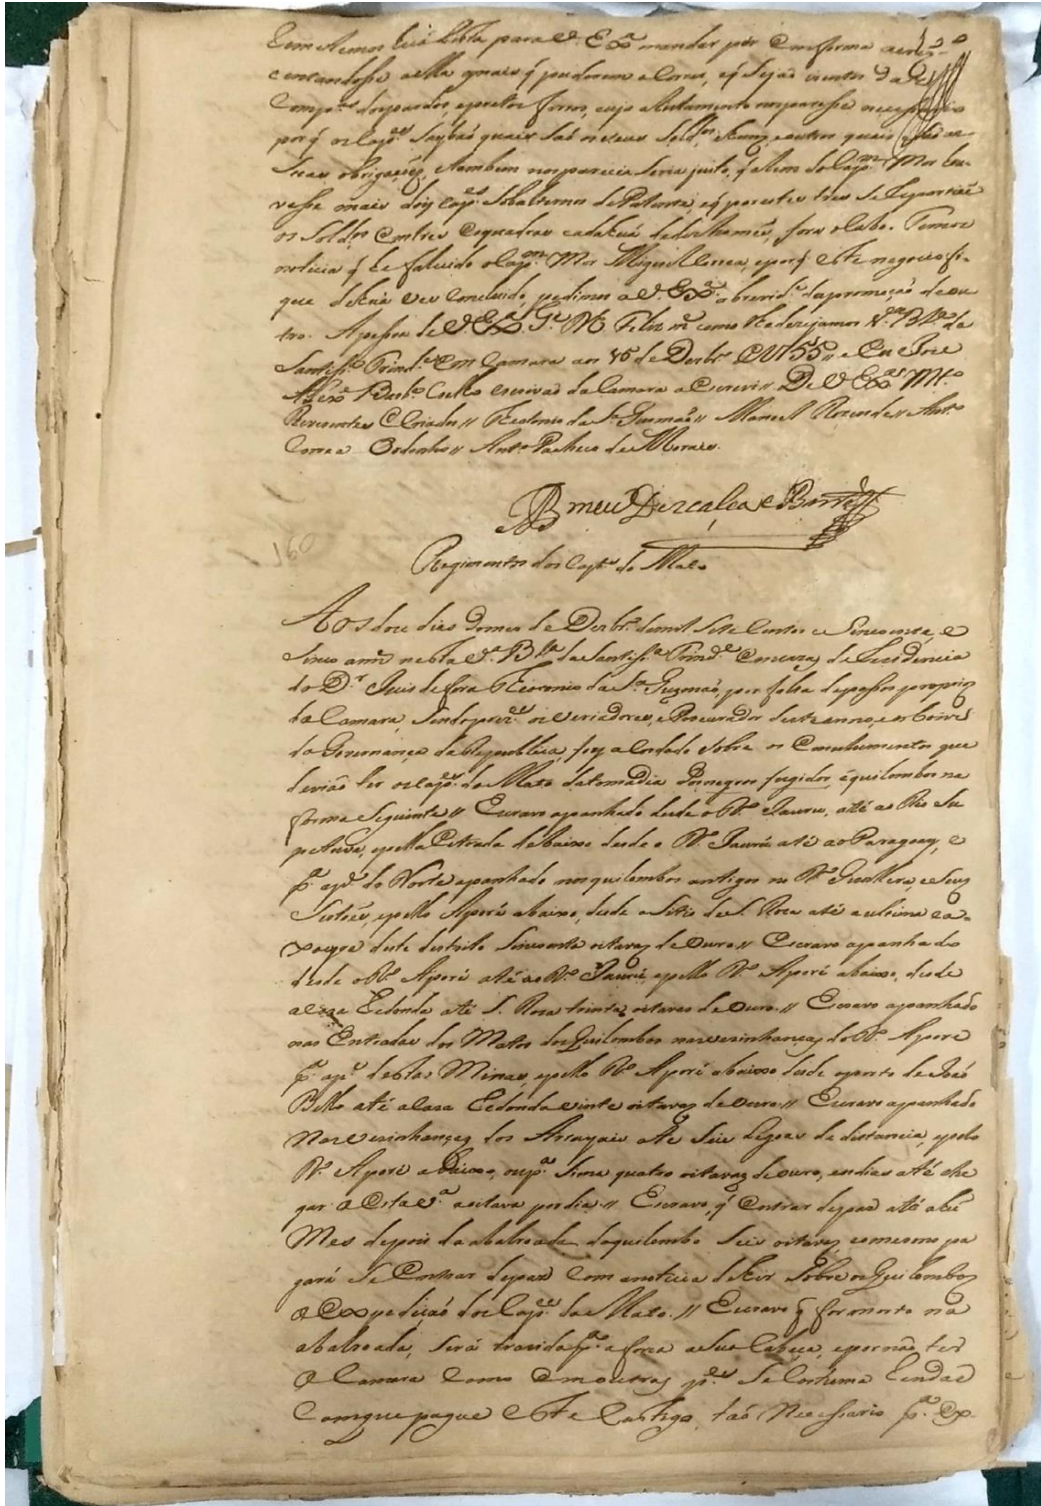 Lemitemos hũa Lista para V. Exª mandar por Comforma acres-
centandosse a ella mais q puderem
Comp.ªˢ dospardos, epretos forros, cujo alistamento nosparesse necessario
por q os Cap.ᵉˢ saybaõ quais saõ osseus Sold.ᵒˢ, e huns, e outros quais saõ as
suas obrigaçoiz, e tambem nosparecia seria justo, q alem do Cap.ᵐ Mor hou-
vesse mais dois cap.ᵉˢ Sobalternos de Patente, e q por estes tres se Repartaõ
os Sold.ᵒˢ Em tres Esquadras cada hua de dez homeñs, fora o Cabo. Temos
noticia q he falecido o Cap.ᵐ Mor Miguel Correa, e por q este negocio fi-
que de huã vez Concluido, pedimos a V. Exª abrevid.ᵉ dapromoçaõ de ou
tro. Apessoa de V. Exª G.ᵉ D.ˢ Felix m.ˢ como lhe dezejamos V.ª B.ª da
Santiss.ª Trind.ᵉ em Camara aos 15 de Dezbr.º 1755 // e Eu Joze
Barb.º Coelho escrivaõ da Camara a Escrevi // De V. Ex.ªˢ M.ᵗᵒ
Reverentes Criados // Theotonio da S.ª Gusmaõ // Manoel Rezende // Ant.º
Correa Godinho // Ant.º Pacheco de Moraes.
Bmeu Descalça e Barros
160
Regimento dos Cap.ᵉˢ do Mato
Aos doze dias do mes de Dezbr.º demil Sete Centos e Sincoenta, e
sinco annos nesta V.ª B.ª da Santiss.ª Trind.ᵉ Em cazas de Rezidencia
do D.ʳ Juis de fora Theotonio da S.ª Gusmaõ, por falta depassos proprios
da Camara, sendo prez.ᵉˢ os veriadores, e Procurador deste anno, e os homẽs
da Governança da Republica, foy acordado sobre os Emolumentos que
deviaõ ter os cap.ᵉˢ do Mato datomadia dosnegros fugidos, equilombos na
forma seguinte // Escravo apanhado desde o R.º Jauru, até ao Rio Se
petuva, epella Estrada debaixo desde o R.º Jaurú até ao Paraguay, e
p.ª ap.ᵗᵉ do Norte apanhado nosquilombos antigos no R.º Gualhera, e seuz
Sertoens, epello Aporé abaixo, desde o sitio de S. Roza até a ultima ca-
xoeyra deste destrito sincoenta oitavas de ouro // Escravo apanhado
desde o R.º Aporé até ao R.º Jaurú, epello R.º Aporé abaixo, desde
a caza Redonda até S. Roza trinta oitavas de ouro // Escravo apanhado
nas Entradas dos Matos dos Quilombos nas vezinhanças do R.º Aporé
p.ª ap.ᵗᵉ destas Minas, epello R.º Aporé abaixo desde oporto de Joaõ
Bello até a Caza Redonda vinte oitavas de ouro // Escravo apanhado
Nasvezinhanças dos Arrayais ate seis Legoas de distancia, epelo
R.º Aporé abaixo, oup.ª sima quatro oitavas de ouro, e os dias até che
gar a Esta V.ª a oitava por dia // Escravo, q Entrar depaz até a hũ
Mes depois da abalroada doquilombo Seis oitavas, e o mesmo pa
gará se Entrar depaz com anoticia de hir sobre os Quilombos
a Expediçaõ dos Cap.ᵉˢ do Mato. // Escravo q for morto na
abalroada, será trazida p.ª a forca a sua Cabeça, e por naõ ter
a Camara como Em outras p.ᵉˢ se Costuma Renda
Comque pague Este Castigo, taõ Necessario p.ª Ex-